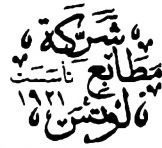 شركة
مطابع تأسست
١٩٢١
لوتس